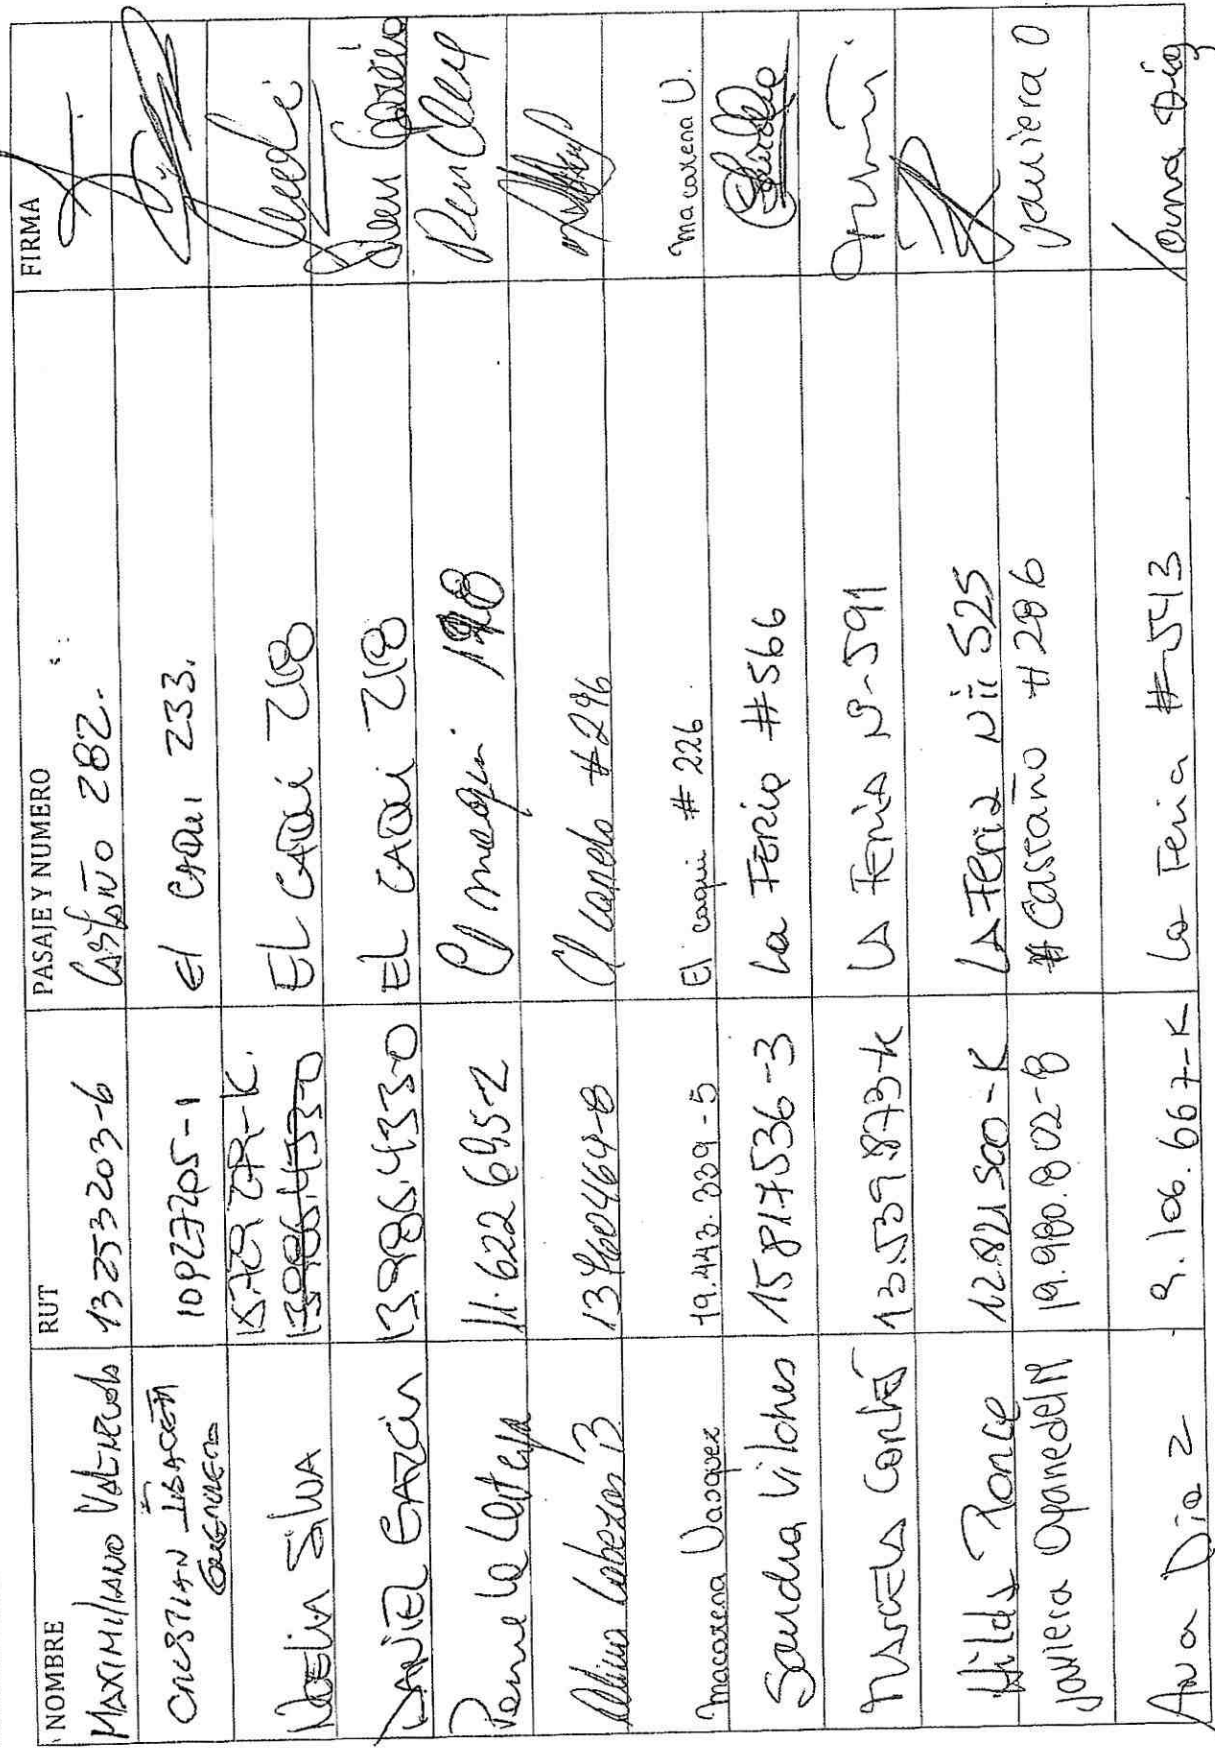 NOMBRE RUT PASAJE Y NUMERO FIRMA
MAXIMILIANO 13253203-6 Castaño 282.
CRISTIAN 10927205-1 El CAQUI 233.
NOELIA SILVA EL CAQUI 218
DANIEL GARCIA 13.986.433-0 EL CAQUI 218
11.622.695-2 El maqui
Cabezas B 13460464-8 El canelo #296
Macarena Vasquez 19.443.339-5 El caqui #226 Macarena V.
Sandra Vilches 15817536-3 La FERIA #566
MARCELA 13.539.873-K LA Feria Nº-591
Hilda Ponce 12.821.500-K LA Feria 525
Javiera Oyanedel M 19.980.802-8 # Castaño #286 Javiera O
Ana Diaz 9.106.667-K La Feria #-543 Diaz